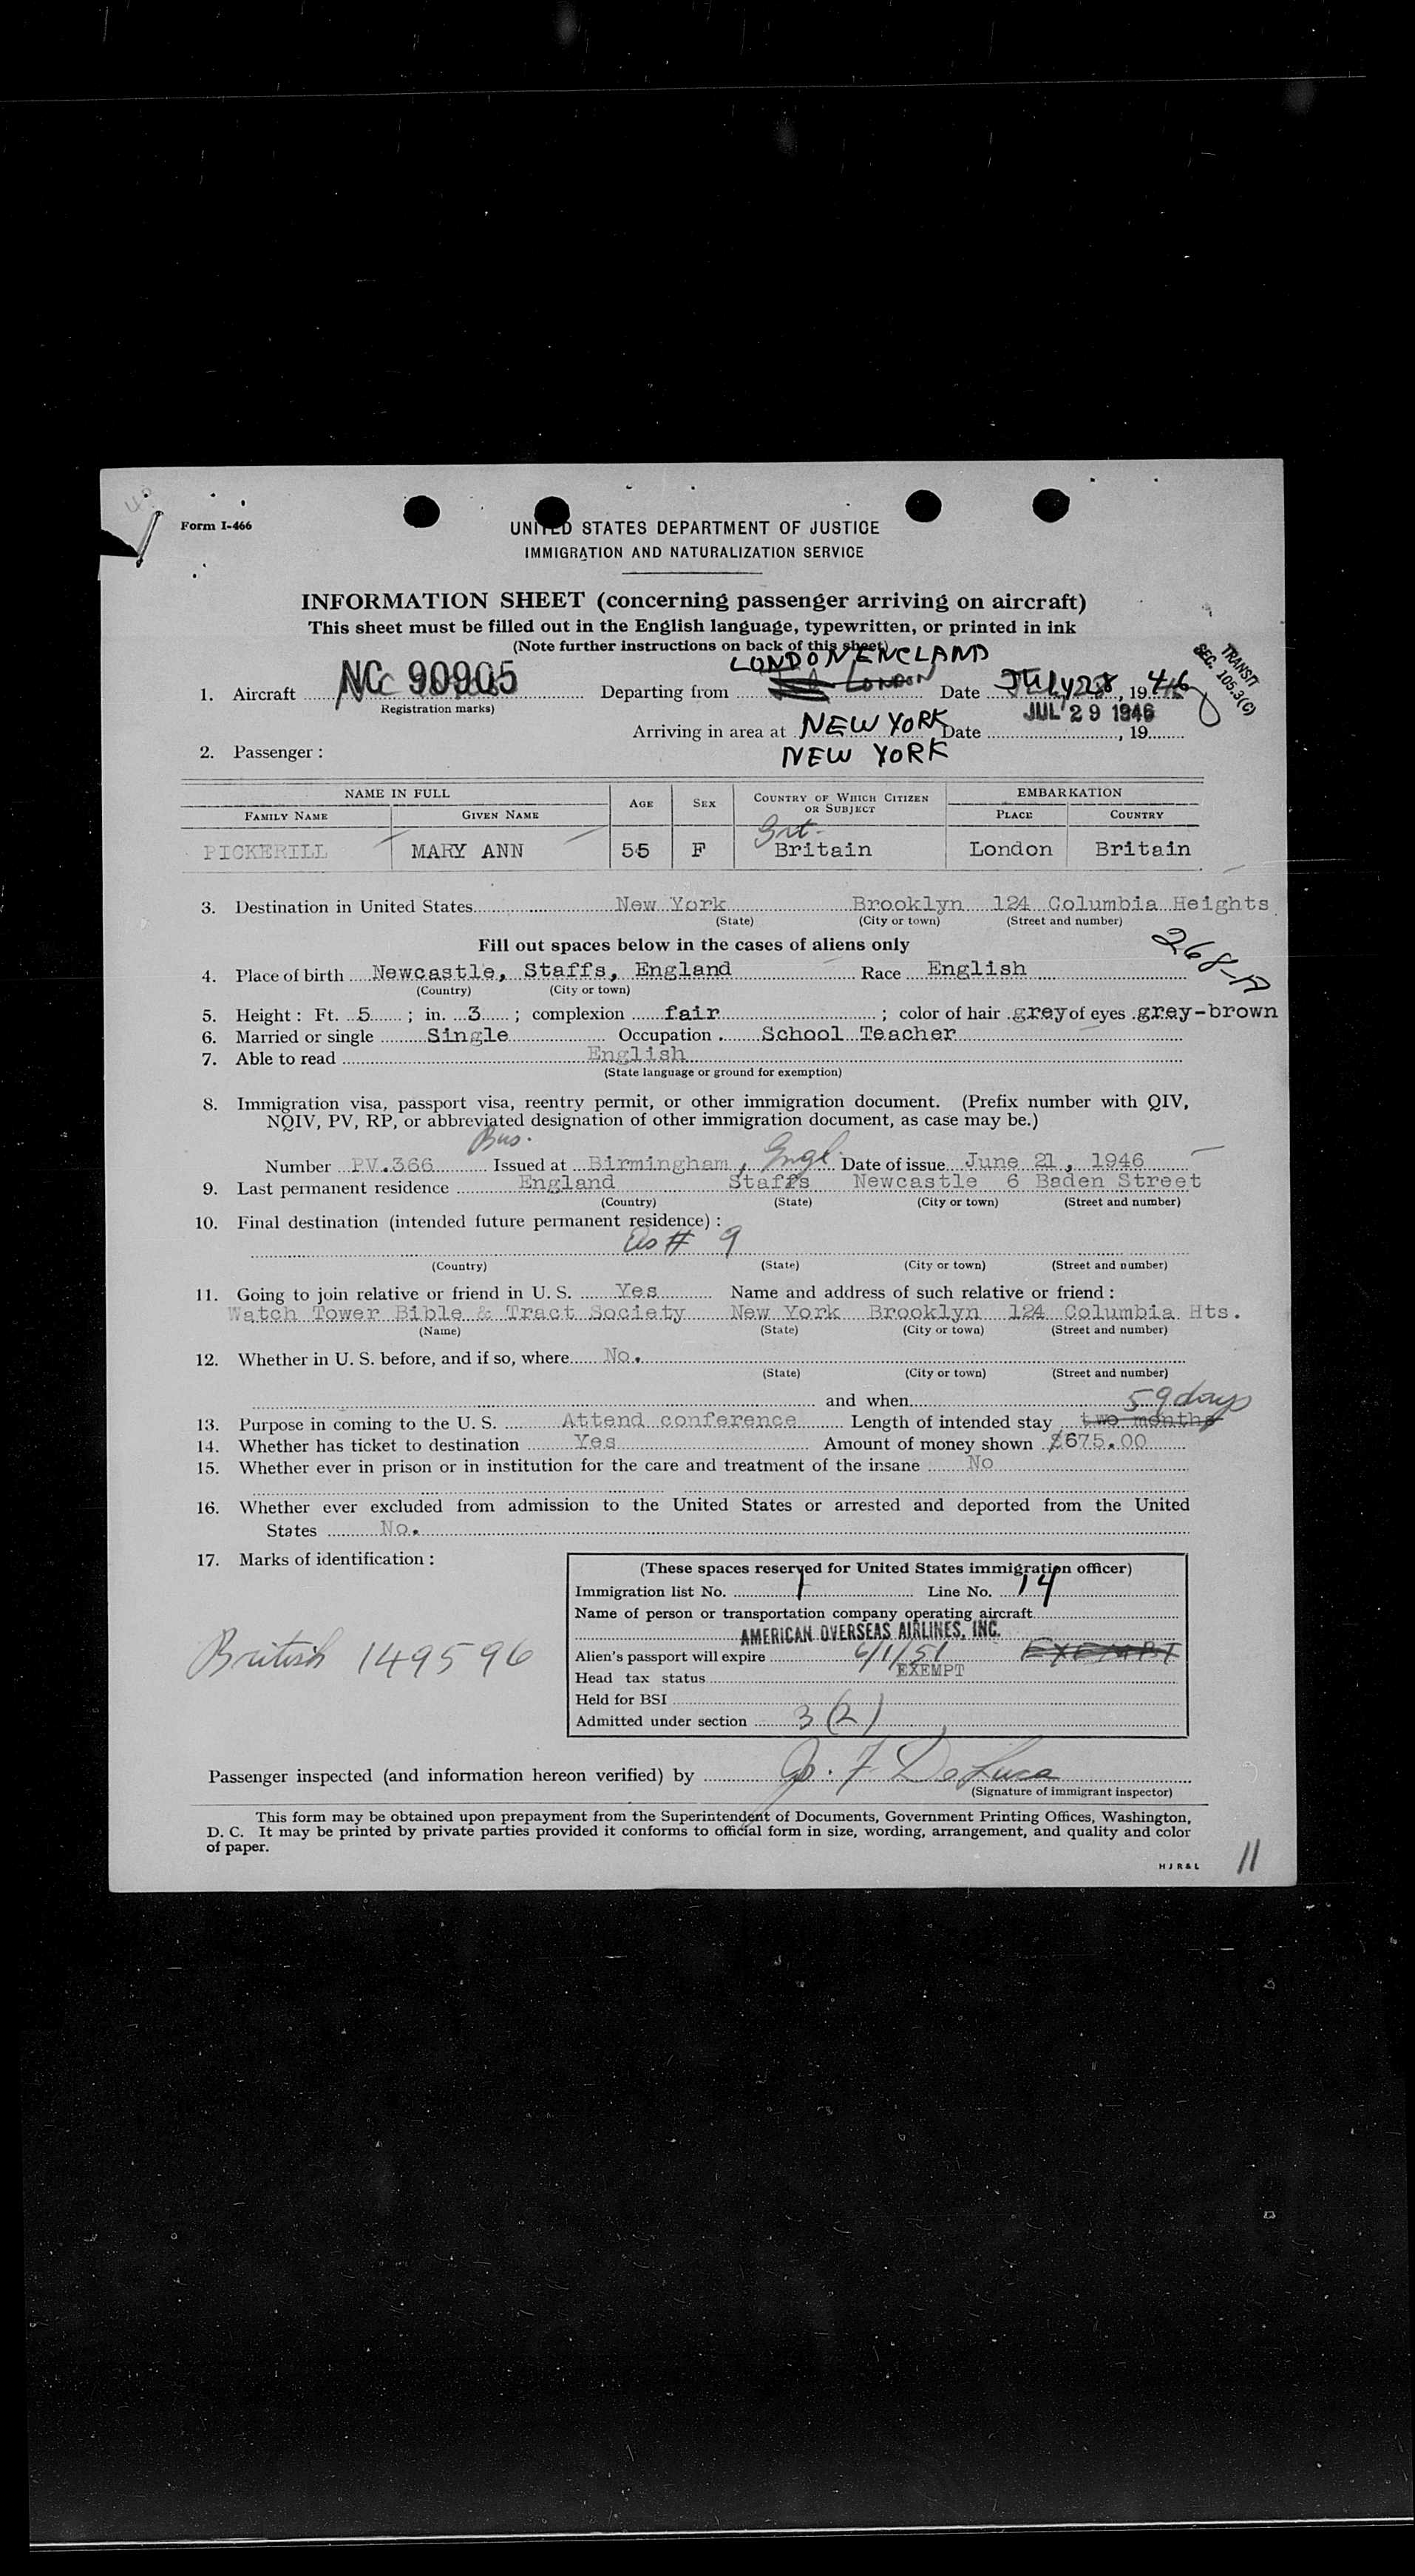 Form I-466
UNITED STATES DEPARTMENT OF JUSTICE
IMMIGRATION AND NATURALIZATION SERVICE
INFORMATION SHEET (concerning passenger arriving on aircraft)
This sheet must be filled out in the English language, typewritten, or printed in ink
(Note further instructions on back of this sheet)
LONDON ENGLAND
TRANSIT
SEC. 105.3(C)
1. Aircraft NC 90905 Departing from LONDON Date July 28, 1946
Registration marks)
JUL 29 1946
Arriving in area at NEW YORK Date , 19
2. Passenger : NEW YORK
NAME IN FULL AGE SEX COUNTRY OF WHICH CITIZEN OR SUBJECT EMBARKATION
FAMILY NAME GIVEN NAME PLACE COUNTRY
Grt.
PICKERILL MARY ANN 55 F Britain London Britain
3. Destination in United States New York Brooklyn 124 Columbia Heights
(State) (City or town) (Street and number)
Fill out spaces below in the cases of aliens only
268-A
4. Place of birth Newcastle, Staffs, England Race English
(Country) (City or town)
5. Height : Ft. 5 ; in. 3 ; complexion fair ; color of hair grey of eyes grey-brown
6. Married or single Single Occupation School Teacher
7. Able to read English
(State language or ground for exemption)
8. Immigration visa, passport visa, reentry permit, or other immigration document. (Prefix number with QIV,
NQIV, PV, RP, or abbreviated designation of other immigration document, as case may be.)
Bus.
Number PV.366 Issued at Birmingham, Engl. Date of issue June 21, 1946
9. Last permanent residence England Staffs Newcastle 6 Baden Street
(Country) (State) (City or town) (Street and number)
10. Final destination (intended future permanent residence) :
as # 9
(Country) (State) (City or town) (Street and number)
11. Going to join relative or friend in U. S. Yes Name and address of such relative or friend :
Watch Tower Bible & Tract Society New York Brooklyn 124 Columbia Hts.
(Name) (State) (City or town) (Street and number)
12. Whether in U. S. before, and if so, where No.
(State) (City or town) (Street and number)
and when
59 days
13. Purpose in coming to the U. S. Attend conference Length of intended stay two months
14. Whether has ticket to destination Yes Amount of money shown $675.00
15. Whether ever in prison or in institution for the care and treatment of the insane No
16. Whether ever excluded from admission to the United States or arrested and deported from the United
States No.
17. Marks of identification :
(These spaces reserved for United States immigration officer)
Immigration list No. 1 Line No. 14
Name of person or transportation company operating aircraft
AMERICAN OVERSEAS AIRLINES, INC.
British 149596
Alien's passport will expire 6/1/51 EXEMPT
Head tax status EXEMPT
Held for BSI
Admitted under section 3 (2)
Passenger inspected (and information hereon verified) by Jo. F DeLuca
(Signature of immigrant inspector)
This form may be obtained upon prepayment from the Superintendent of Documents, Government Printing Offices, Washington,
D. C. It may be printed by private parties provided it conforms to official form in size, wording, arrangement, and quality and color
of paper.
H J R & L
11